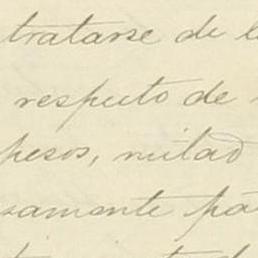 tratarse de l
respecto de
pesos, mitad
samente pa